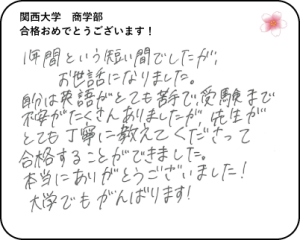 関西大学　商学部
合格おめでとうございます！
1年間という短い間でしたが、
お世話になりました。
自分は英語がとても苦手で、受験まで
不安がたくさんありましたが、先生が
とても丁寧に教えてくださって
合格することができました。
本当にありがとうございました！
大学でもがんばります！